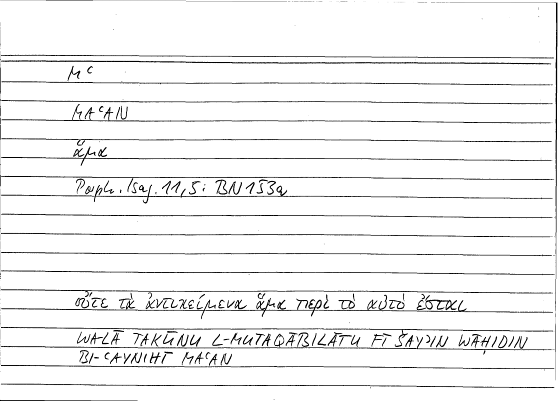 Mᶜ
MAᶜAN
ἅμα
Porph. Isag. 11,5: BN153a
οὔτε τὰ ἀντικείμενα ἅμα περὶ τὸ αὐτὸ ἔσται
WALĀ TAKŪNU L-MUTAQĀBILĀTU FĪ ŠAYʾIN WĀḤIDIN
BI-ᶜAYNIHĪ MAᶜAN